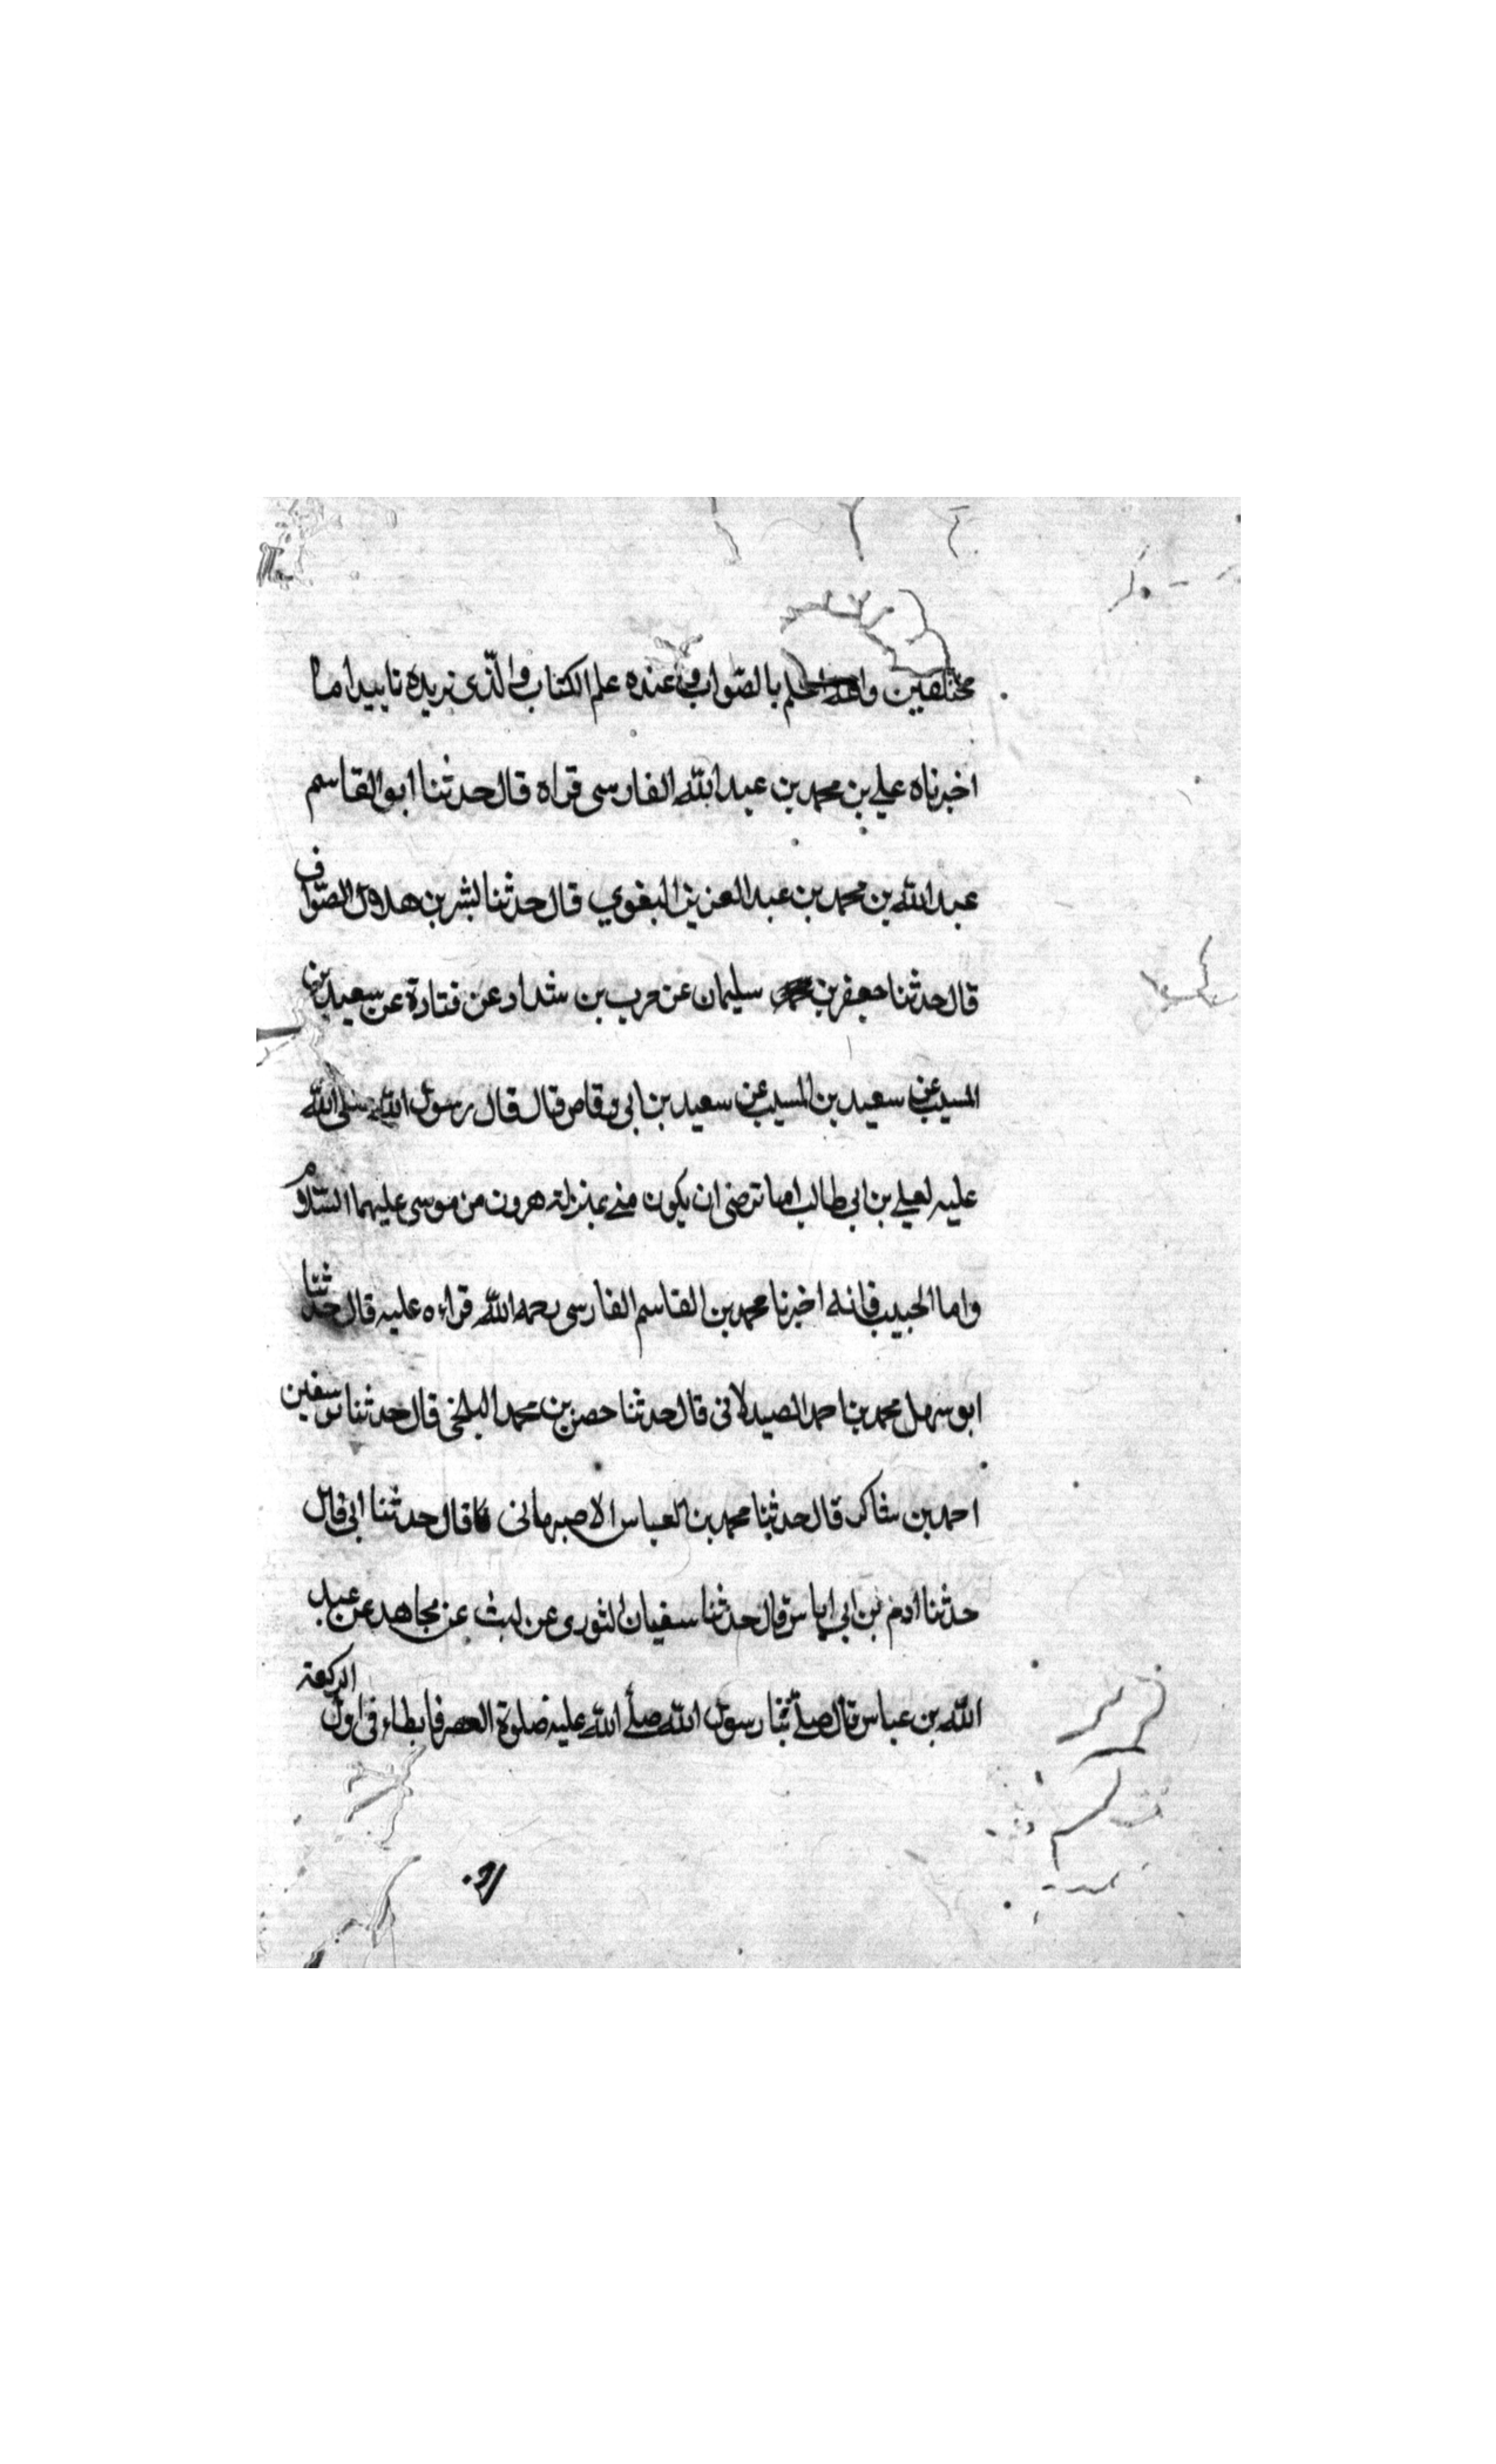 مختلفين والله اعلم بالصواب عنده علم الكتاب والذى نريده تاييدا ما
اخبرناه علي بن محمد بن عبد الله الفارسى قراة قال حدثنا ابو القاسم
عبد الله بن محمد بن عبد العزيز البغوي قال حدثنا بشر بن هلال الصّواف
قال حدثنا جعفر بن سليمان عن حرب بن شداد عن قتادة عن سعيد بن
المسيب عن سعيد بن المسيب عن سعيد بن ابى وقاص قال قال رسول الله صلى الله
عليه لعلي بن ابى طالب اما ترضى ان يكون منى بمنزلة هرون من موسى عليهما السّلام
واما الحبيب فانه اخبرنا محمد بن القاسم الفارسى رحمه الله قراءه عليه قال حدثنا
ابو سهل محمد بن احمد الصيدلانى قال حدثنا حصن بن محمد البلخى قال حدثنا سفين
احمد بن شاكر قال حدثنا محمد بن العباس الاصبهانى قال حدثنا ابى قال
حدثنا ادم بن ابى اياس قال حدثنا سفيان الثورى عن ليث عن مجاهد عن عبد
الله بن عباس قال صلّى بنا رسول الله صلّى الله عليه صلوة العصر فابطاء فى اول الركعة